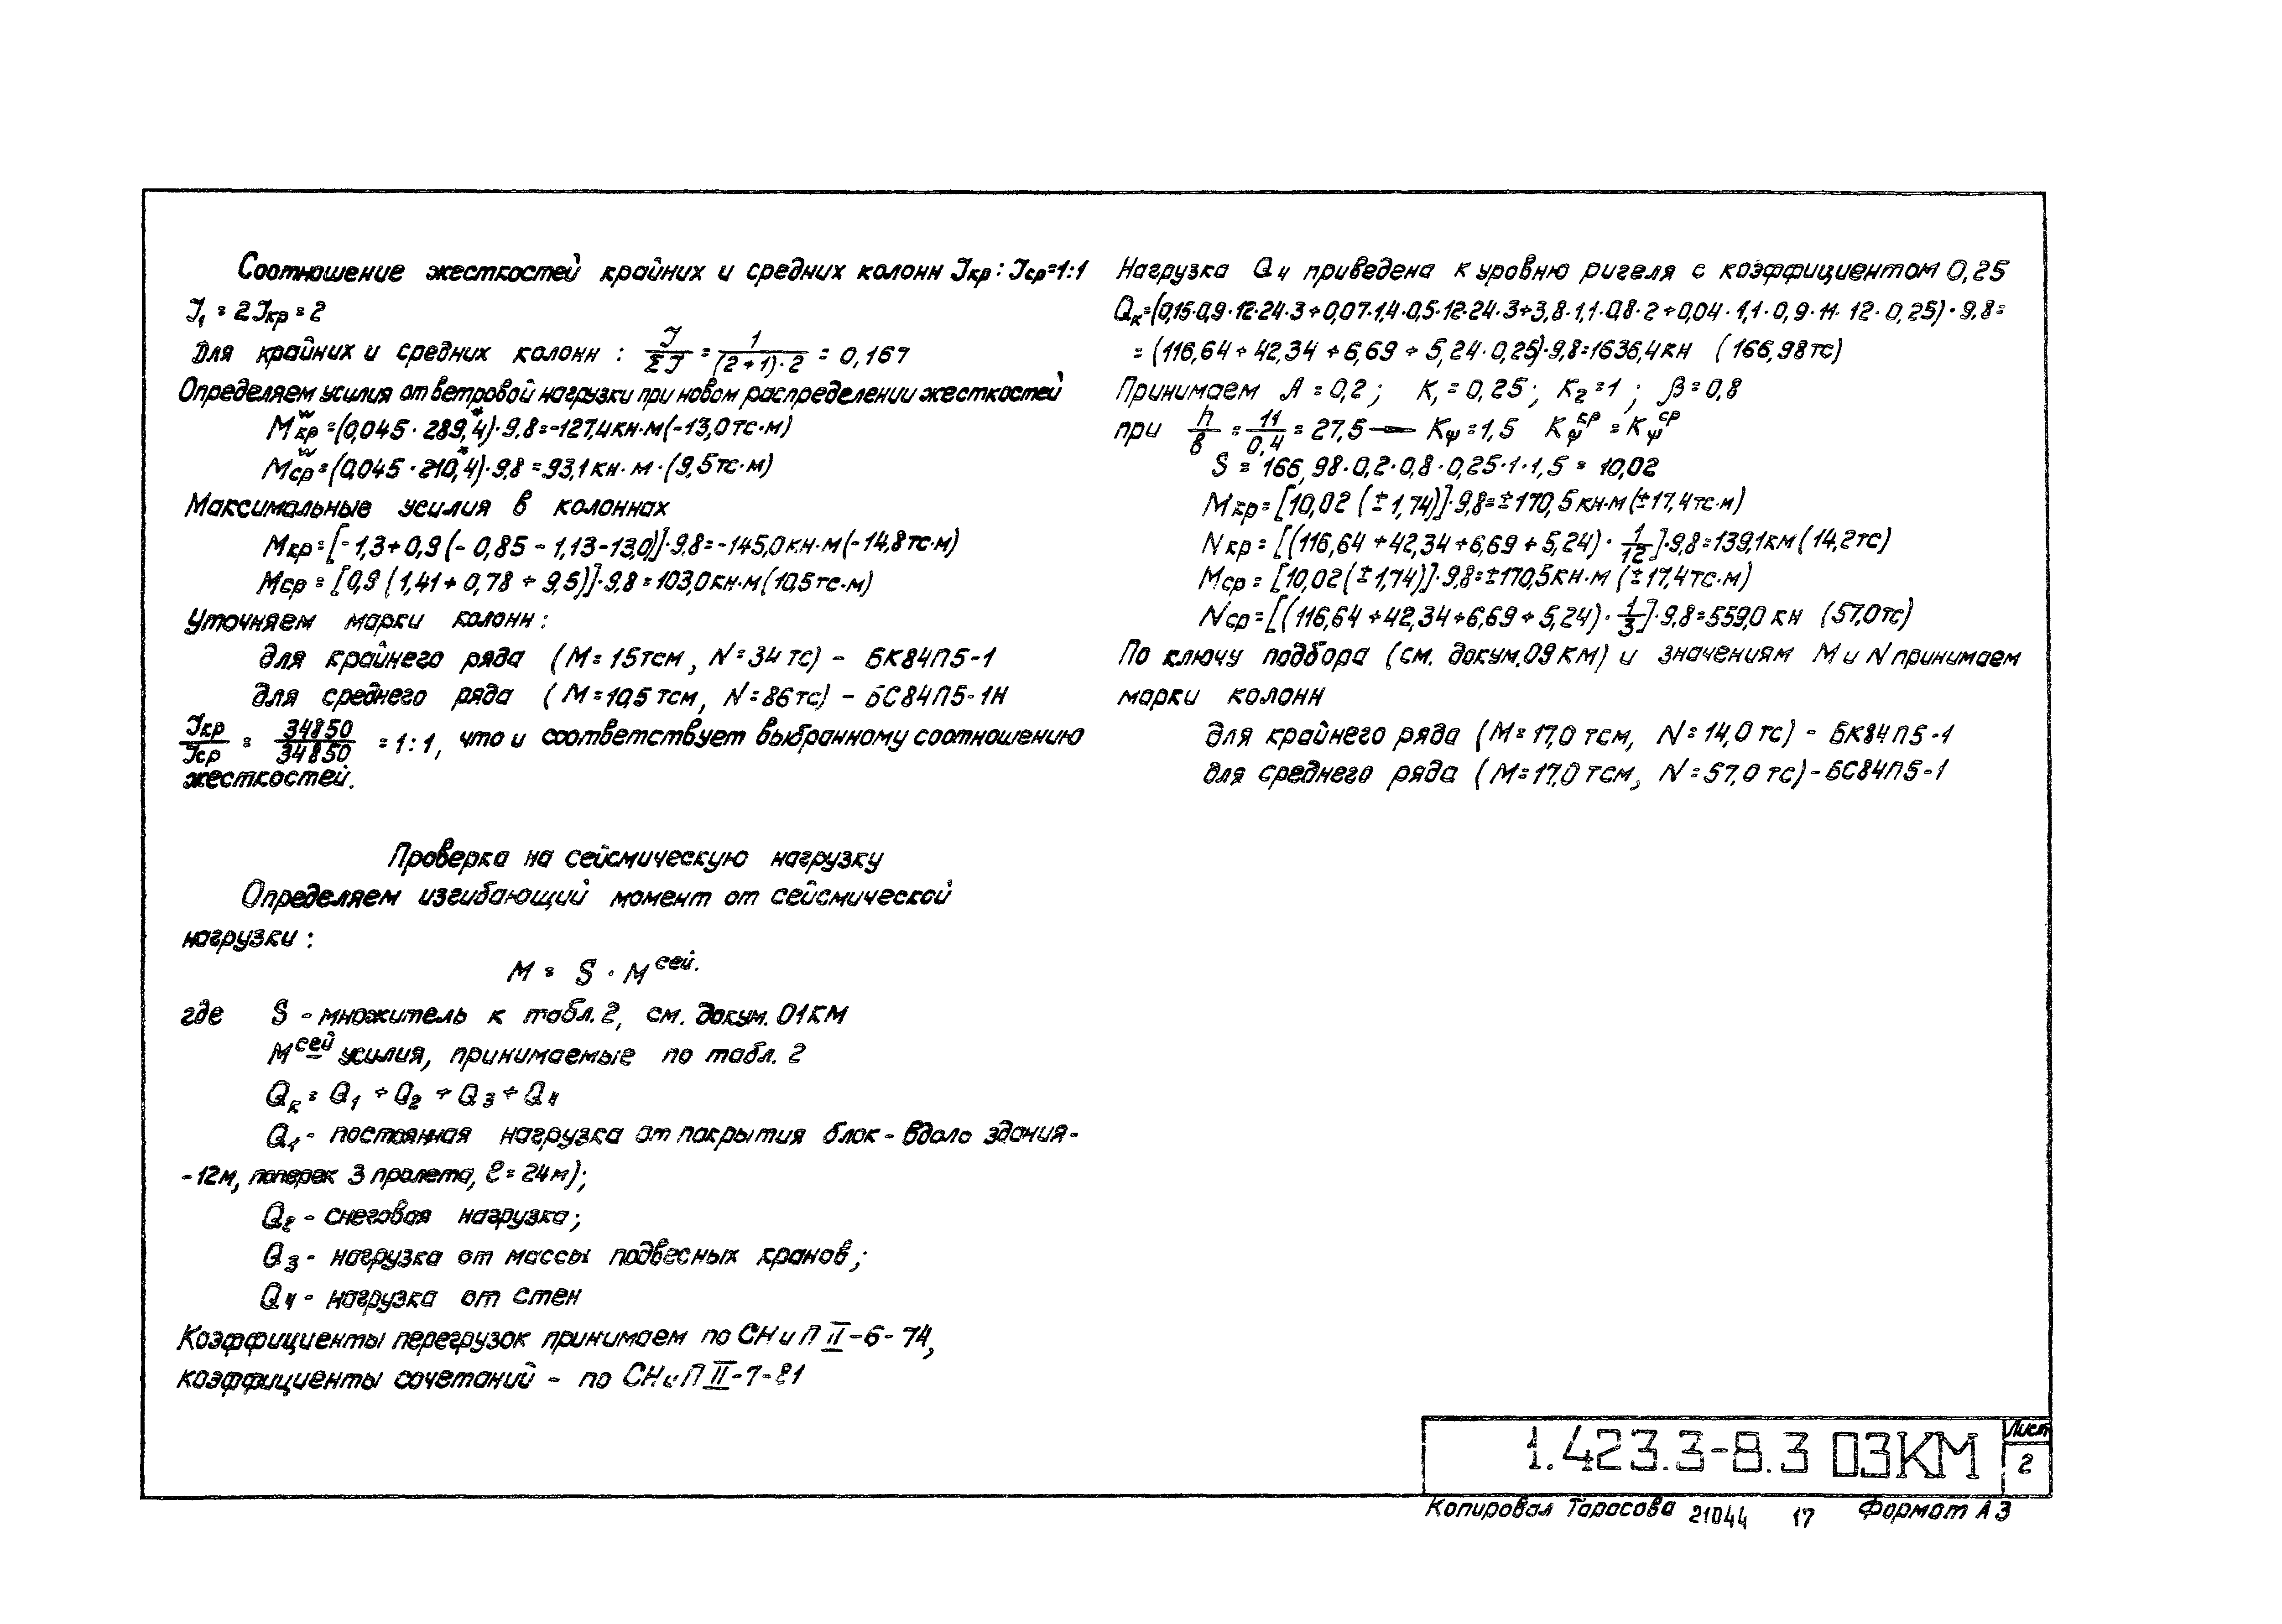 Соотношение жесткостей крайних и средних колонн Jкр : Jср=1:1
J₁ = 2Jкр = 2
Для крайних и средних колонн : J/ΣJ = 1/((2+1)·2) = 0,167
Определяем усилия от ветровой нагрузки при новом распределении жесткостей
Mкр^w = (0,045 · 289,4*)·9,8=-127,4кн·м(-13,0тс·м)
Mср^w = (0,045 · 210,4*)·9,8 = 93,1кн·м·(9,5тс·м)
Максимальные усилия в колоннах
Mкр=[-1,3+0,9(-0,85-1,13-13,0)]·9,8=-145,0кн·м(-14,8тс·м)
Mср = [0,9 (1,41+0,78 + 9,5)]·9,8 = 103,0кн·м(10,5тс·м)
Уточняем марки колонн:
для крайнего ряда (М= 15тсм, N=34тс) - БК84П5-1
для среднего ряда (М=10,5 тсм, N=86тс) - БС84П5-1Н
Jкр/Jср = 34850/34850 = 1:1, что и соответствует выбранному соотношению
жесткостей.
Проверка на сейсмическую нагрузку
Определяем изгибающий момент от сейсмической
нагрузки :
M = S · M^сей.
где S - множитель к табл. 2, см. докум. 01КМ
M^сей - усилия, принимаемые по табл. 2
Qк = Q₁ + Q₂ + Q₃ + Q₄
Q₁ - постоянная нагрузка от покрытия блок - вдоль здания-
-12м, поперек 3 пролета, ℓ = 24м);
Q₂ - снеговая нагрузка;
Q₃ - нагрузка от массы подвесных кранов;
Q₄ - нагрузка от стен
Коэффициенты перегрузок принимаем по СНиП II-6-74,
коэффициенты сочетаний - по СНиП II-7-81
Нагрузка Q₄ приведена к уровню ригеля с коэффициентом 0,25
Qк=(0,15·0,9·12·24·3+0,07·1,4·0,5·12·24·3+3,8·1,1·0,8·2+0,04·1,1·0,9·11·12·0,25)·9,8=
= (116,64 + 42,34 + 6,69 + 5,24·0,25)·9,8=1636,4кн (166,98тс)
Принимаем А = 0,2 ; К₁ = 0,25 ; К₂ = 1 ; β = 0,8
при h/в = 11/0,4 = 27,5 → Kψ = 1,5 Kψ^кр = Kψ^ср
S = 166,98·0,2·0,8·0,25·1·1,5 = 10,02
Mкр= [10,02 (±1,74)]·9,8=±170,5кн·м(±17,4тс·м)
Nкр = [(116,64 +42,34+6,69+5,24)· 1/12]·9,8=139,1км(14,2тс)
Mср = [10,02(±1,74)]·9,8=±170,5кн·м (±17,4тс·м)
Nср=[(116,64 +42,34+6,69+5,24)· 1/3]·9,8=559,0 кн (57,0тс)
По ключу подбора (см. докум.09КМ) и значениям М и N принимаем
марки колонн
для крайнего ряда (М=17,0 тсм, N=14,0 тс) - БК84П5-1
для среднего ряда (М=17,0 тсм, N=57,0 тс)-БС84П5-1
1.423.3-8.3 03КМ
Лист
2
Копировал Тарасова 21044 17 Формат А3